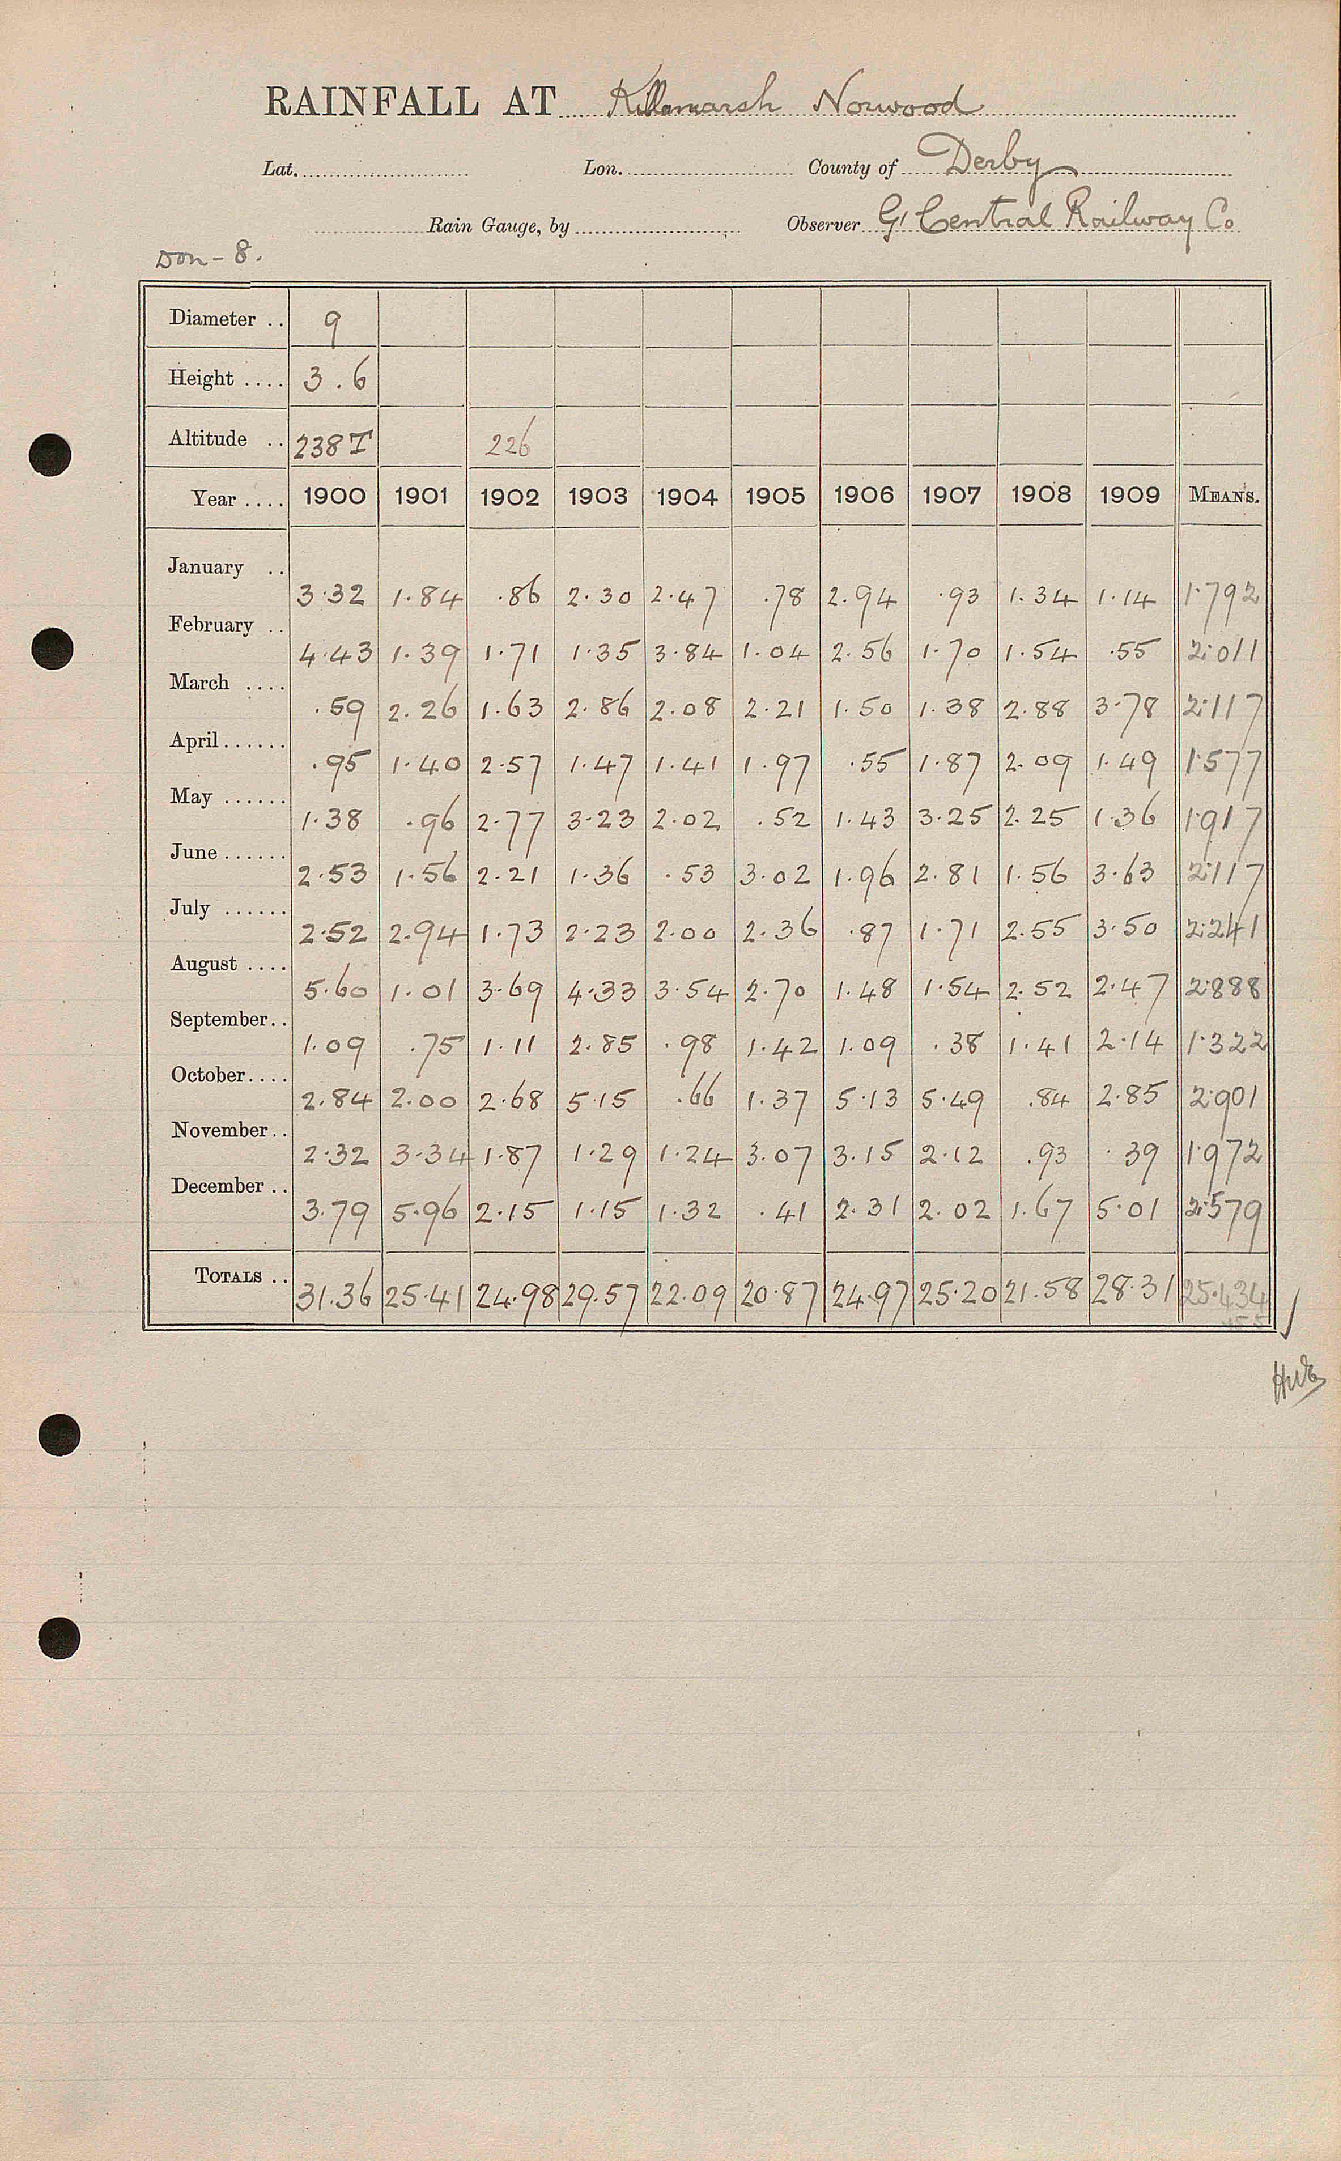 RAINFALL AT Killamarsh Norwood
Lat. Lon. County of Derby
Rain Gauge, by Observer Gt Central Railway Co
Don - 8.
Diameter .. 9
Height .... 3.6
Altitude .. 238 T 226
Year .... 1900 1901 1902 1903 1904 1905 1906 1907 1908 1909 MEANS.
January .. 3.32 1.84 .86 2.30 2.47 .78 2.94 .93 1.34 1.14 1.792
February .. 4.43 1.39 1.71 1.35 3.84 1.04 2.56 1.70 1.54 .55 2.011
March .... .59 2.26 1.63 2.86 2.08 2.21 1.50 1.38 2.88 3.78 2.117
April...... .95 1.40 2.57 1.47 1.41 1.97 .55 1.87 2.09 1.49 1.577
May ...... 1.38 .96 2.77 3.23 2.02 .52 1.43 3.25 2.25 1.36 1.917
June ...... 2.53 1.56 2.21 1.36 .53 3.02 1.96 2.81 1.56 3.63 2.117
July ...... 2.52 2.94 1.73 2.23 2.00 2.36 .87 1.71 2.55 3.50 2.241
August .... 5.60 1.01 3.69 4.33 3.54 2.70 1.48 1.54 2.52 2.47 2.888
September.. 1.09 .75 1.11 2.85 .98 1.42 1.09 .38 1.41 2.14 1.322
October.... 2.84 2.00 2.68 5.15 .66 1.37 5.13 5.49 .84 2.85 2.901
November.. 2.32 3.34 1.87 1.29 1.24 3.07 3.15 2.12 .93 .39 1.972
December .. 3.79 5.96 2.15 1.15 1.32 .41 2.31 2.02 1.67 5.01 2.579
TOTALS .. 31.36 25.41 24.98 29.57 22.09 20.87 24.97 25.20 21.58 28.31 25.434